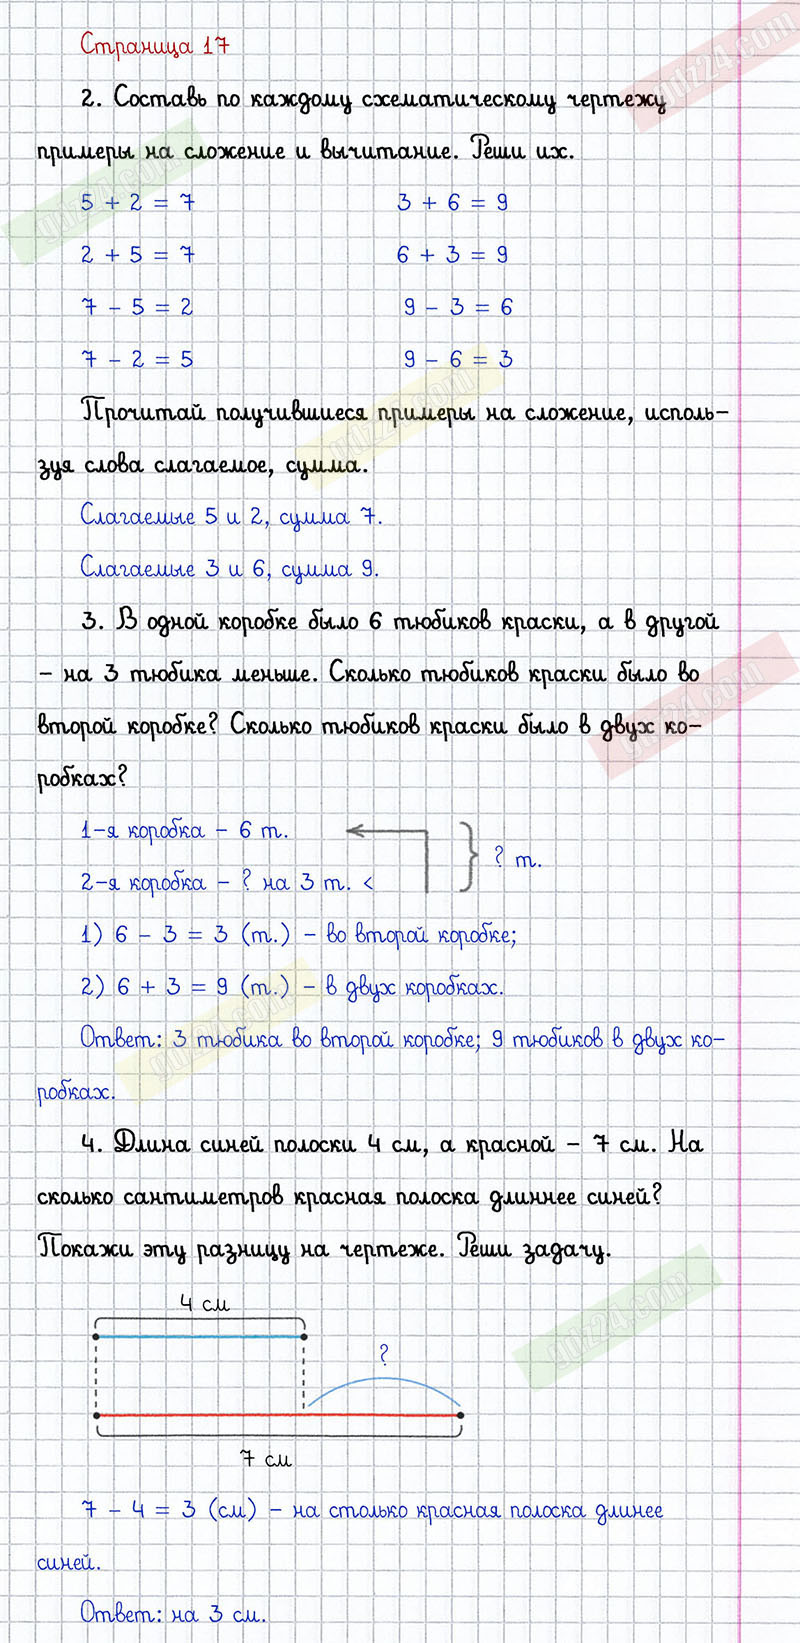 Страница 17
2. Составь по каждому схематическому чертежу
примеры на сложение и вычитание. Реши их.
5 + 2 = 7    3 + 6 = 9
2 + 5 = 7    6 + 3 = 9
7 – 5 = 2    9 – 3 = 6
7 – 2 = 5    9 – 6 = 3
Прочитай получившиеся примеры на сложение, исполь–
зуя слова слагаемое, сумма.
Слагаемые 5 и 2, сумма 7.
Слагаемые 3 и 6, сумма 9.
3. В одной коробке было 6 тюбиков краски, а в другой
– на 3 тюбика меньше. Сколько тюбиков краски было во
второй коробке? Сколько тюбиков краски было в двух ко–
робках?
1–я коробка – 6 т.
? т.
2–я коробка – ? на 3 т. <
1) 6 – 3 = 3 (т.) – во второй коробке;
2) 6 + 3 = 9 (т.) – в двух коробках.
Ответ: 3 тюбика во второй коробке; 9 тюбиков в двух ко–
робках.
4. Длина синей полоски 4 см, а красной – 7 см. На
сколько сантиметров красная полоска длиннее синей?
Покажи эту разницу на чертеже. Реши задачу.
4 см
?
7 см
7 – 4 = 3 (см) – на столько красная полоска длинее
синей.
Ответ: на 3 см.
gdz24.com
gdz24.com
gdz24.com
gdz24.com
gdz24.com
gdz24.com